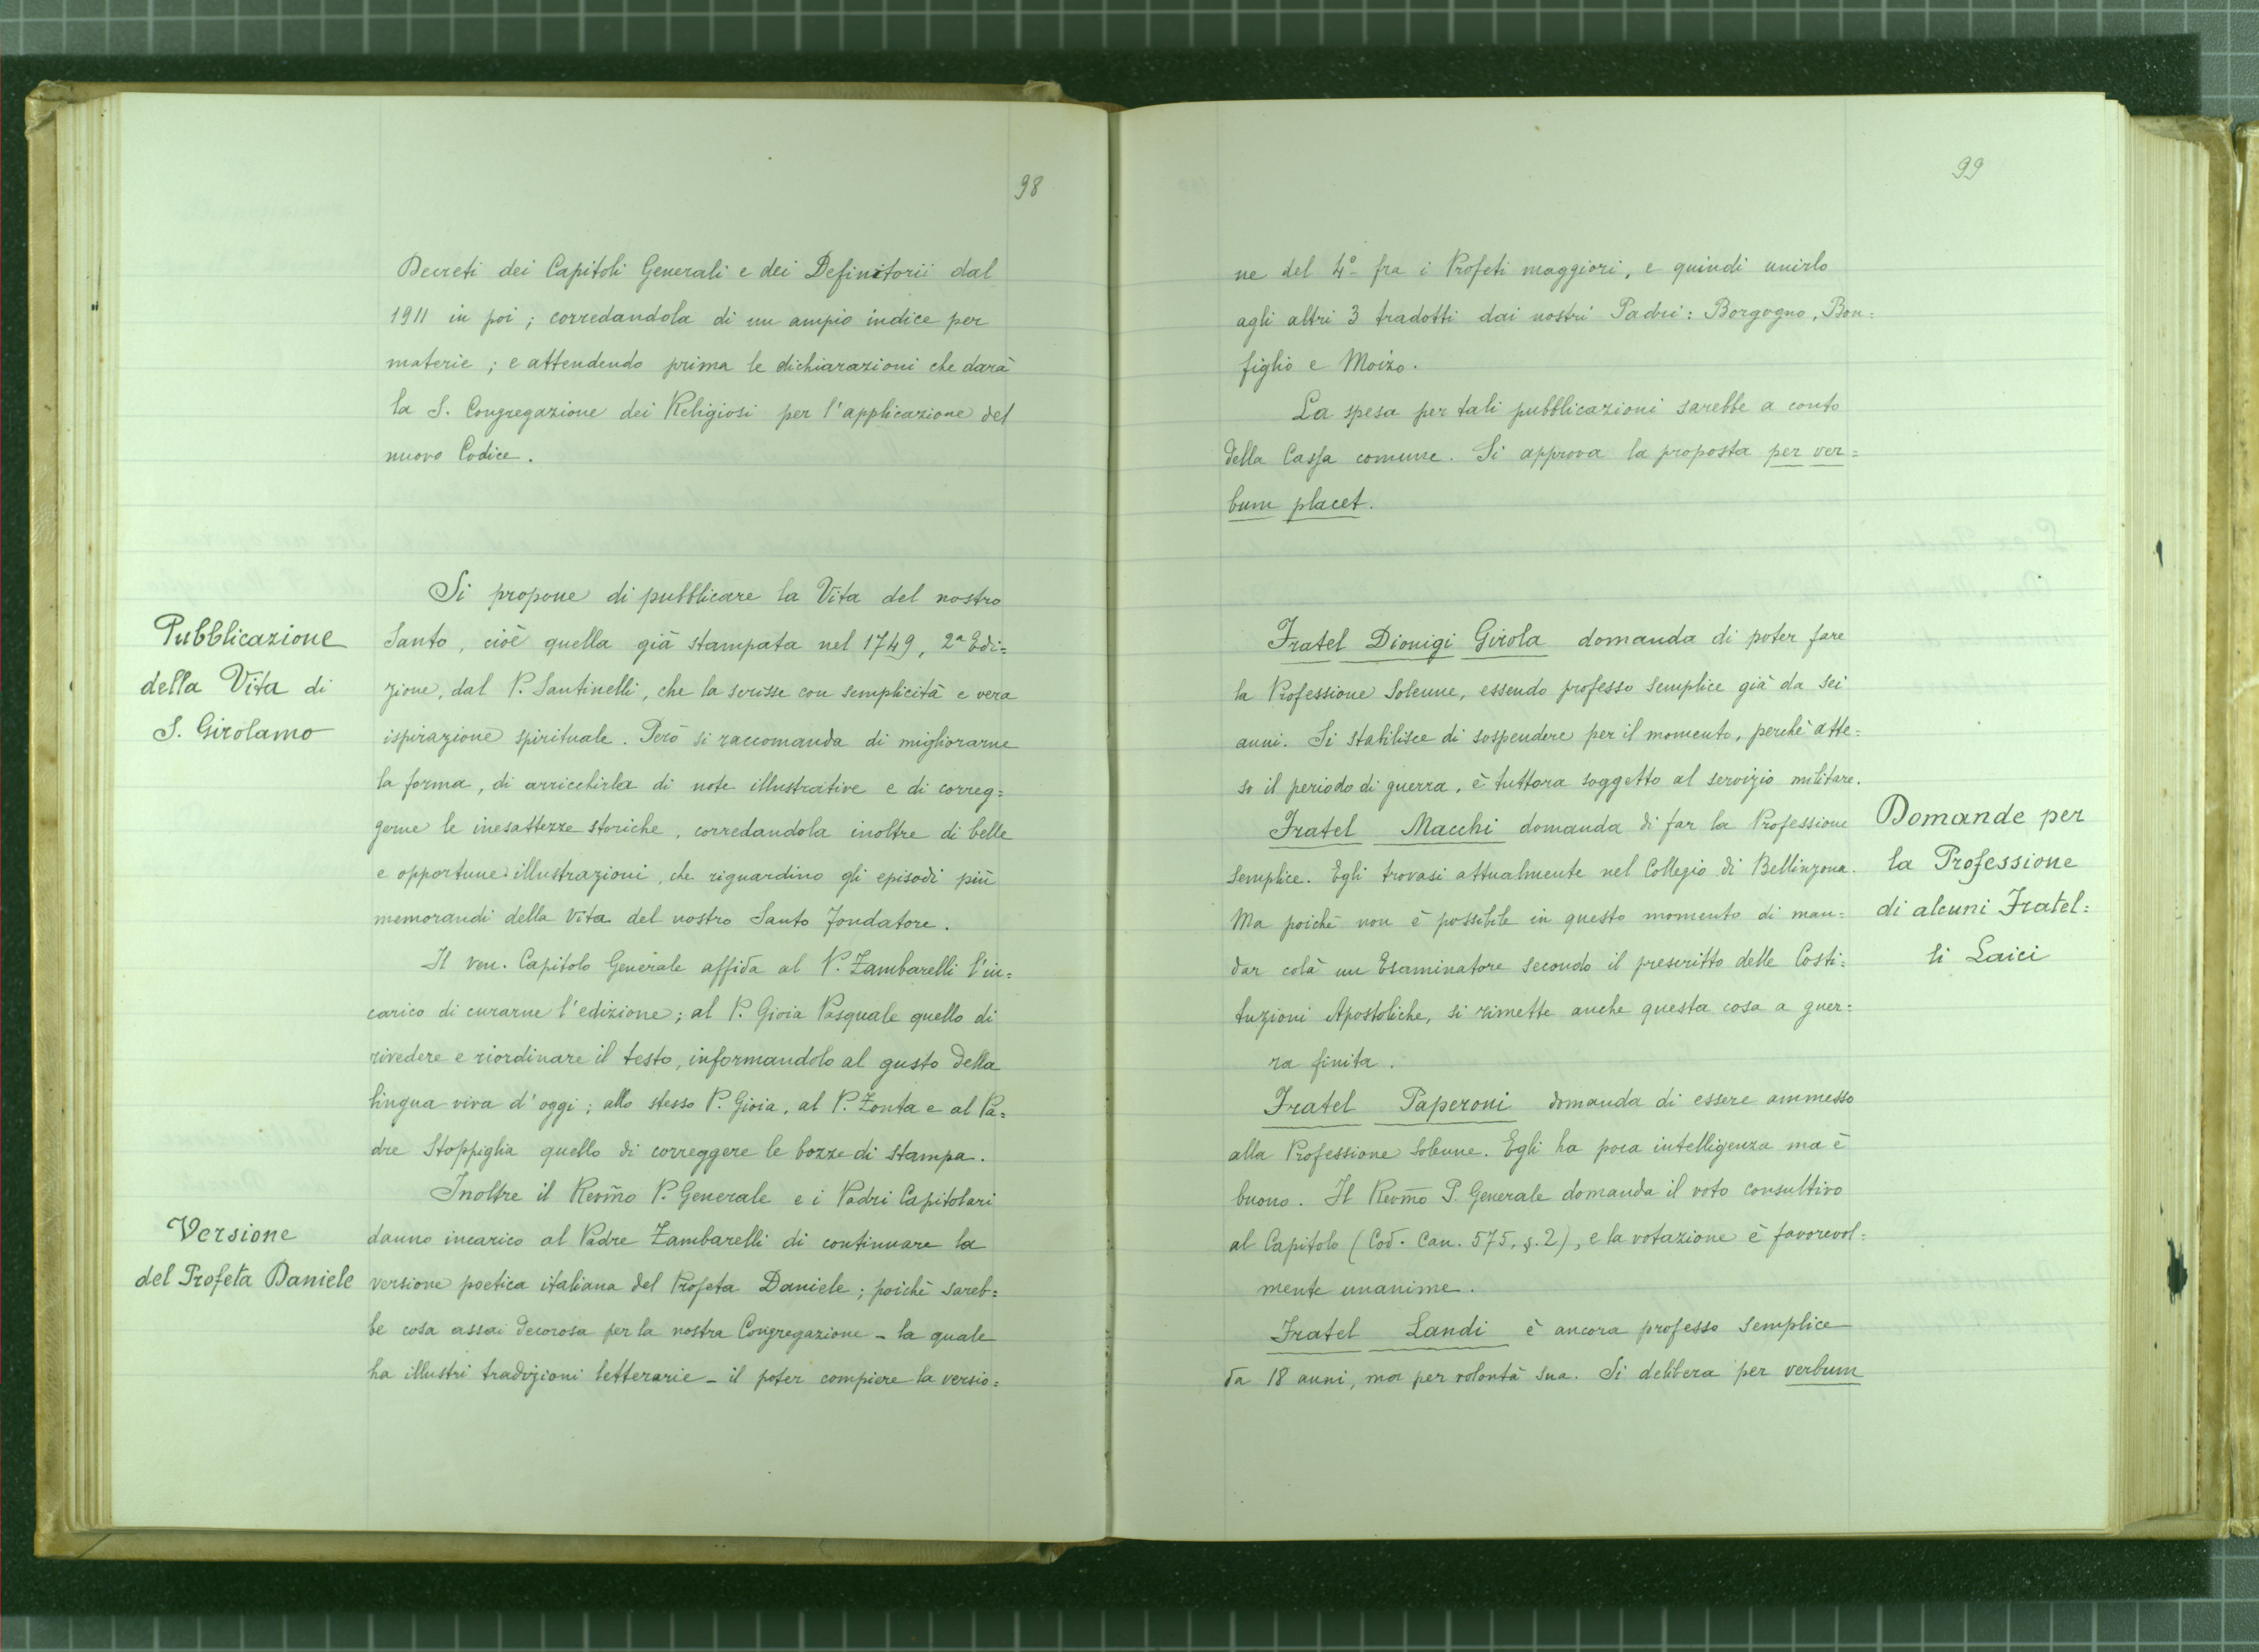 98
Decreti dei Capitoli Generali e dei Definitorii dal
1911 in poi; corredandola di un ampio indice per
materie; e attendendo prima le dichiarazioni che darà
la S. Congregazione dei Religiosi per l'applicazione del
nuovo Codice.
Pubblicazione
della Vita di
S. Girolamo
Si propone di pubblicare la Vita del nostro
Santo, cioè quella già stampata nel 1749, 2ª Edi=
zione, dal P. Santinelli, che la scrisse con semplicità e vera
ispirazione spirituale. Però si raccomanda di migliorarne
la forma, di arricchirla di note illustrative e di correg=
gerne le inesattezze storiche, corredandola inoltre di belle
e opportune illustrazioni, che riguardino gli episodi più
memorandi della Vita del nostro Santo Fondatore.
Il ven. Capitolo Generale affida al P. Zambarelli l'in=
carico di curarne l'edizione; al P. Gioia Pasquale quello di
rivedere e riordinare il testo, informandolo al gusto della
lingua viva d'oggi; allo stesso P. Gioia, al P. Zonta e al Pa=
dre Stoppiglia quello di correggere le bozze di stampa.
Versione
del Profeta Daniele
Inoltre il Revm̃o P. Generale e i Padri Capitolari
danno incarico al Padre Zambarelli di continuare la
versione poetica italiana del Profeta Daniele; poichè sareb=
be cosa assai decorosa per la nostra Congregazione - la quale
ha illustri tradizioni letterarie - il poter compiere la versio=
99
ne del 4º fra i Profeti maggiori, e quindi unirlo
agli altri 3 tradotti dai nostri Padri: Borgogno, Bon=
figlio e Moizo.
La spesa per tali pubblicazioni sarebbe a conto
della Cassa comune. Si approva la proposta per ver=
bum placet.
Fratel Dionigi Girola domanda di poter fare
la Professione Solenne, essendo professo semplice già da sei
anni. Si stabilisce di sospendere per il momento, perchè atte=
so il periodo di guerra, è tuttora soggetto al servizio militare.
Domande per
la Professione
di alcuni Fratel=
li Laici
Fratel Macchi domanda di far la Professione
semplice. Egli trovasi attualmente nel Collegio di Bellinzona.
Ma poichè non è possibile in questo momento di man=
dar colà un Esaminatore secondo il prescritto delle Costi=
tuzioni Apostoliche, si rimette anche questa cosa a guer=
ra finita.
Fratel Paperoni domanda di essere ammesso
alla Professione Solenne. Egli ha poca intelligenza ma è
buono. Il Revm̃o P. Generale domanda il voto consultivo
al Capitolo (Cod. Can. 575, §. 2), e la votazione è favorevol=
mente unanime.
Fratel Landi è ancora professo semplice
da 18 anni, ma per volontà sua. Si delibera per verbum